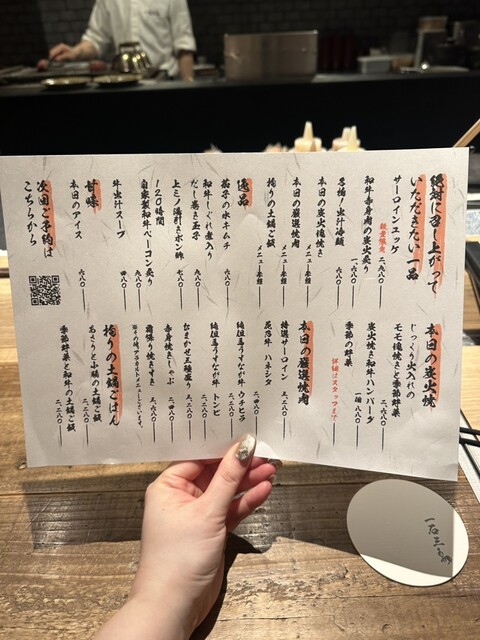 絶対に召し上がって
いただきたい一品
サーロインユッケ
数量限定 二、九八〇
和牛赤身肉の炭火炙り
一、六八〇
子桶！虫汁冷麺
六八〇
本日の炭火塊焼き
メニュー参照
本日の厳選焼肉
メニュー参照
拘りの土鍋ご飯
メニュー参照
逸品
茄子の水キムチ
六八〇
和牛しぐれ煮入り
だし巻き玉子
九八〇
上ミノ湯引きポン酢
七八〇
120時間
自家製和牛ベーコン炙り
九八〇
牛出汁スープ
四八〇
甘味
本日のアイス
次回ご予約は
こちらから
本日の炭火焼
じっくり火入れの
モモ塊焼きと季節野菜
二、六八〇
炭火焼き和牛ハンバーグ
一個 八八〇
季節の野菜
詳細はスタッフまで
本日の厳選焼肉
特選サーロイン
二、八八〇
花乃牛 ハネシタ
二、四八〇
純但馬うすなが牛 ウチヒラ
二、二八〇
純但馬うすなが牛 トンビ
二、二八〇
おまかせ三種盛り
三、二八〇
赤身焼きしゃぶ
二、四八〇
霜降り焼きすき
二、六八〇
拘りの土鍋ごはん
あさりと小柱の土鍋ご飯
二、二八〇
季節野菜と和牛の土鍋ご飯
二、二八〇